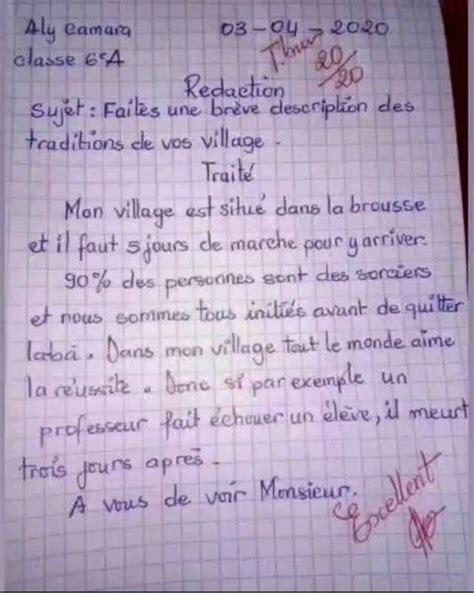 Aly Camara 03-04-2020
classe 6eA T.bien 20/20
Redaction
Sujet: Faites une brève description des
traditions de vos village.
Traité
Mon village est situé dans la brousse
et il faut 5 jours de marche pour y arriver.
90% des personnes sont des sorciers
et nous sommes tous initiés avant de quitter
labà. Dans mon village tout le monde aime
la réussite. Donc si par exemple un
professeur fait échouer un élève, il meurt
trois jours après.
A vous de voir Monsieur.
Excellent